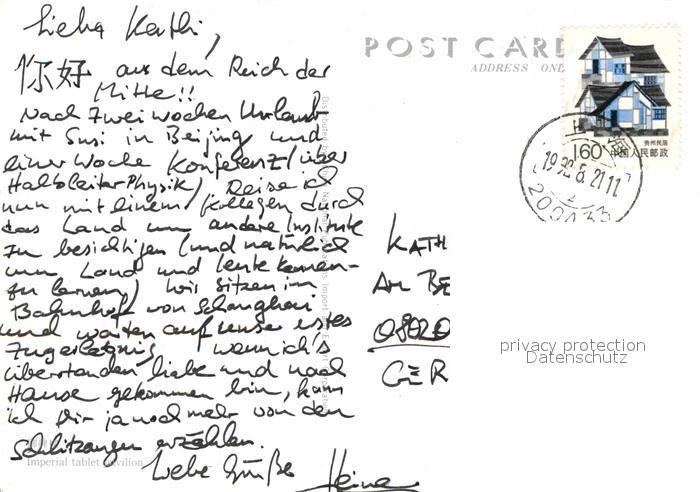 Liebe Kathi,
你好 aus dem Reich der
Mitte!!
Nach zwei Wochen Urlaub
mit Susi in Beijing und
einer Woche Konferenz (über
Halbleiterphysik) Reise ich
nun mit einem Kollegen durch
das Land um andere Institute
zu besichtigen (und natürlich
um Land und Leute kennen-
zu lernen) Wir sitzen im
Bahnhof von Schanghai
und warten auf unser erstes
Zugerlebnis, wenn ich's
überstanden habe und nach
Hause gekommen bin, kann
ich Dir ja noch mehr von den
Schlitzaugen erzählen.
Liebe Grüße
Imperial tablet pavilion
POST CARD
ADDRESS ONL
贵州民居
1.60 中国人民邮政
19 92.8.21 11
KATH
AM BE
GER
privacy protection
Datenschutz